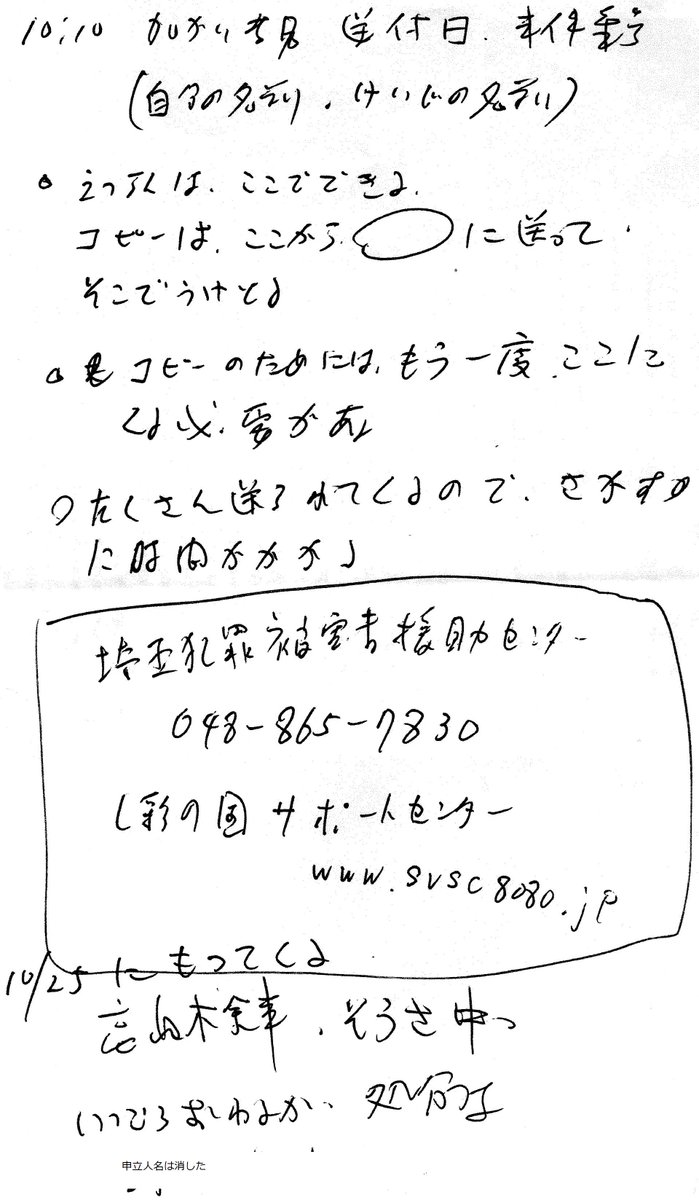 10:10 かがり 送付日、事件番号
(自分の名前、けいじの名前)
えつらんは、ここでできる、
コピーは、ここから に送って、
そこでうけとる
コピーのためには、もう一度、ここに
くる必要がある
たくさん送られてくるので、さがす
に時間がかかる
埼玉犯罪被害者援助センター
048-865-7830
彩の国サポートセンター
www.svsc8080.jp
10/25 にもってくる
そうさ中
いつごろおわるか、処分は
申立人名は消した